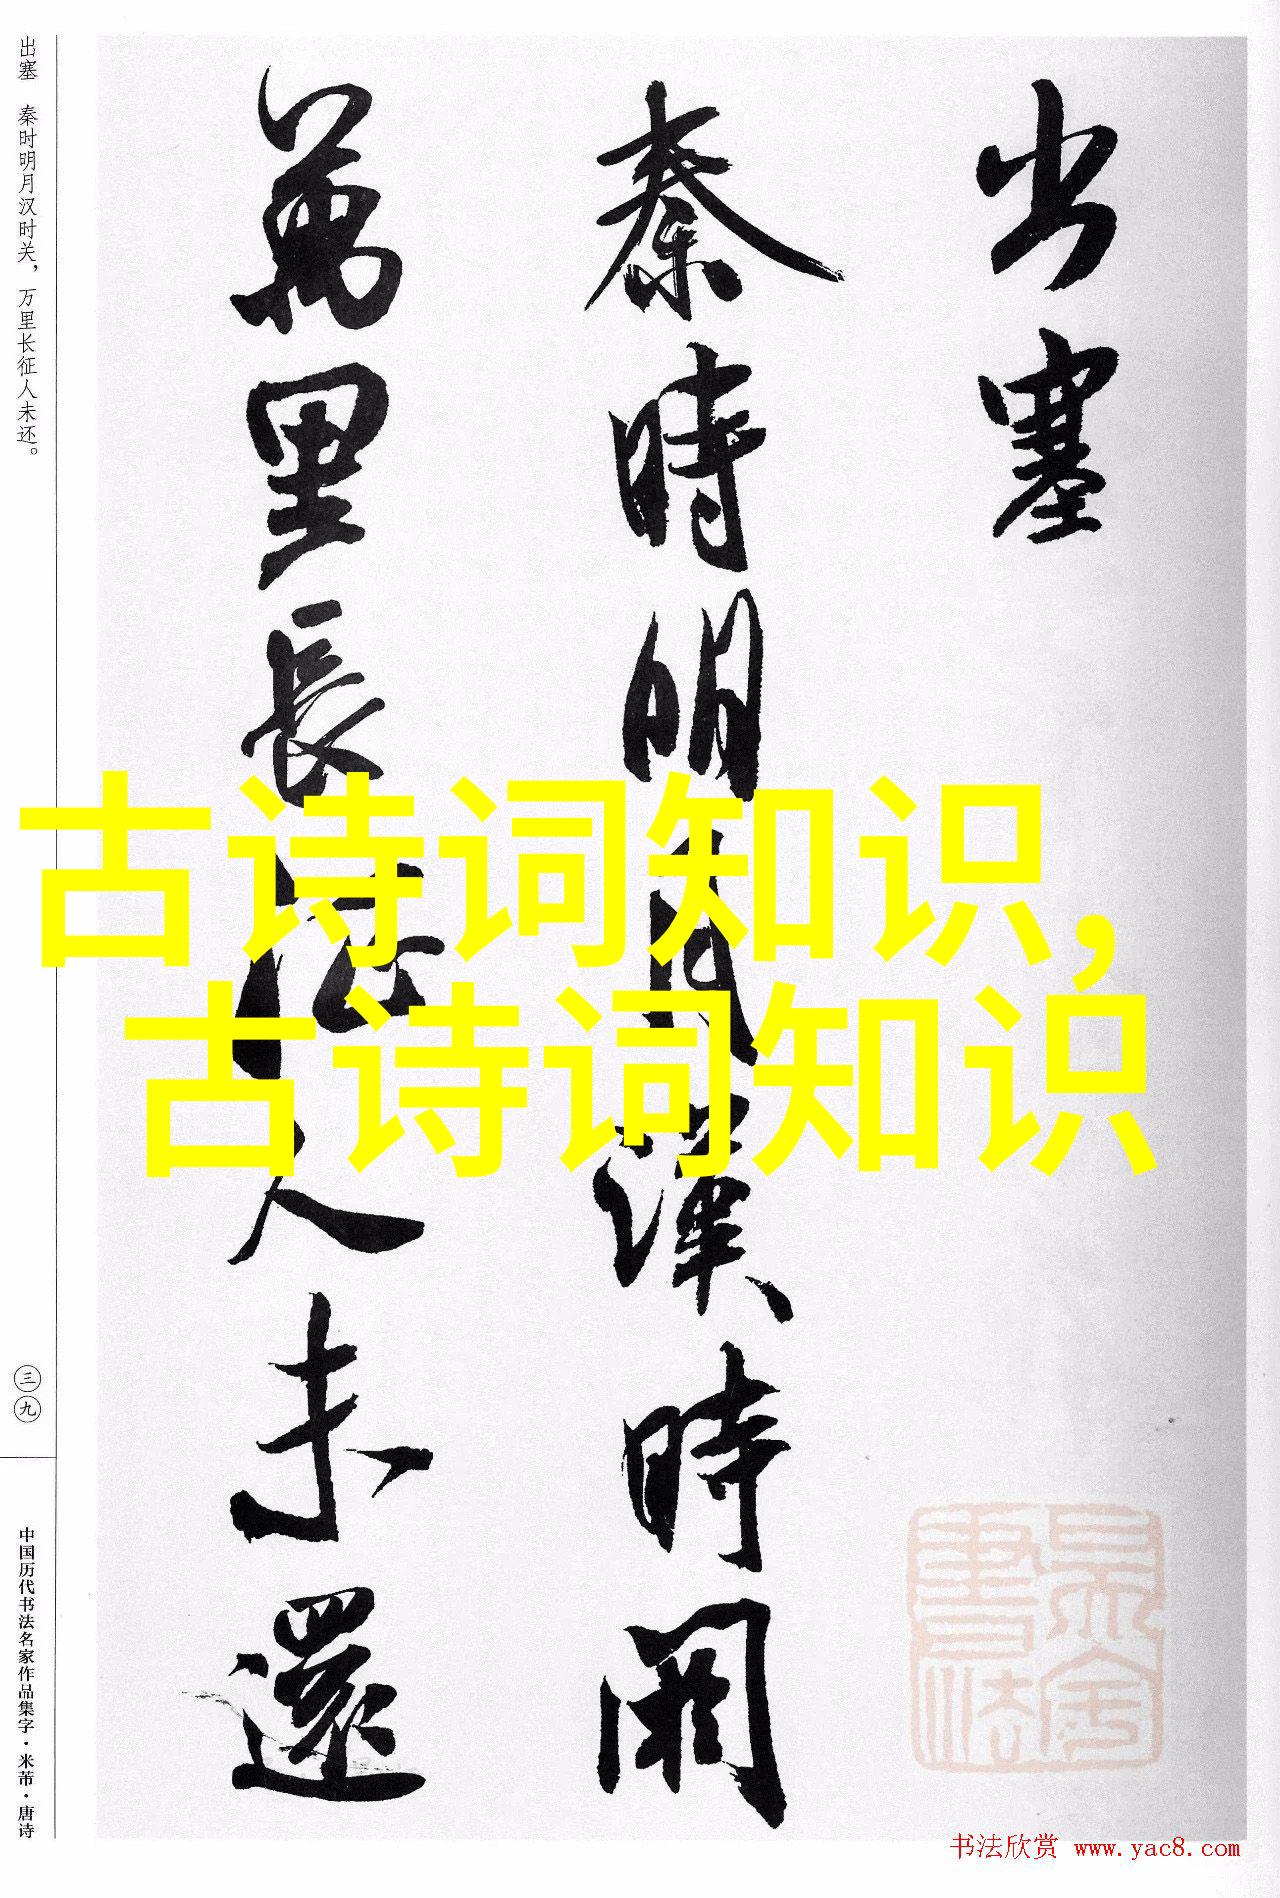 出塞
秦時明月漢時関
萬里長征人未還
出塞 秦时明月汉时关，万里长征人未还。
三九
中国历代书法名家作品集字·米芾·唐诗
古诗词知识,
古诗词知识
书法欣赏 www.yac8.com